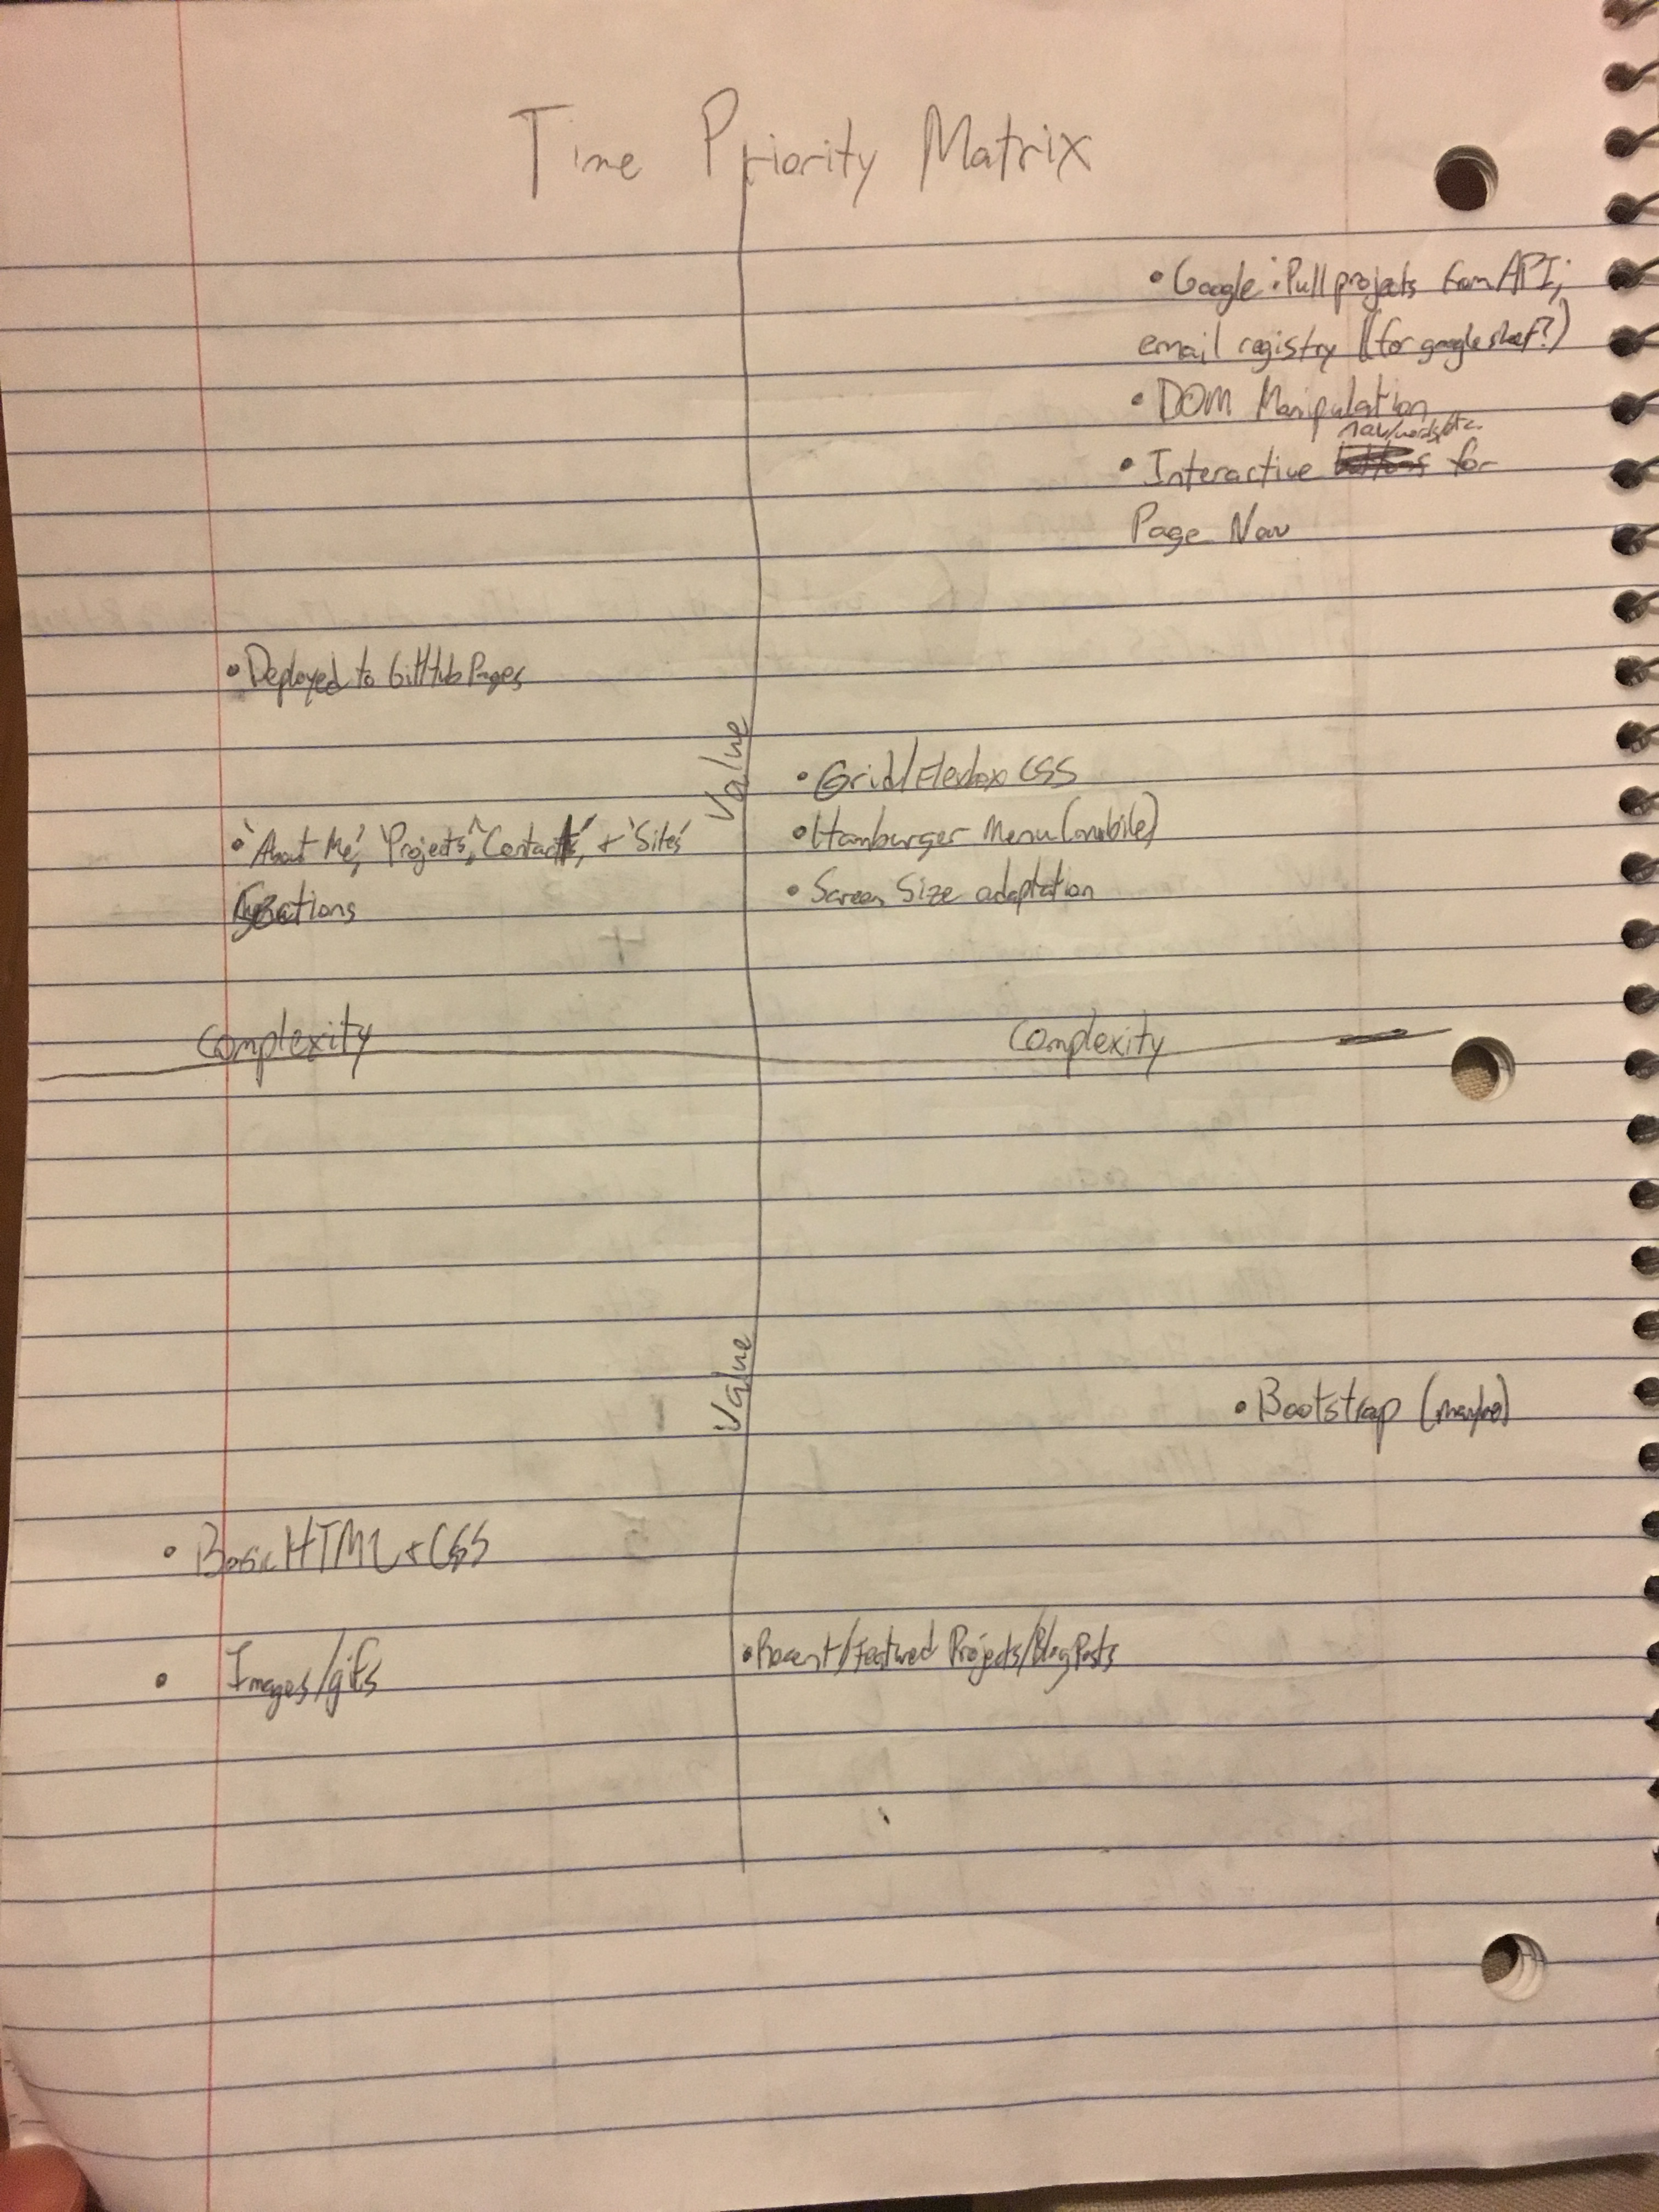 Time Priority Matrix
• Google: Pull projects from API;
email registry (for google sheet?)
• DOM Manipulation
nav/words/etc.
• Interactive for
Page Nav
• Deployed to GitHub Pages
Value
• Grid/Flexbox CSS
• Hamburger Menu (mobile)
• Screen Size adaptation
• 'About Me', 'Projects', 'Contact', + 'Sites'
Complexity
Complexity
Value
• Bootstrap (maybe)
• Basic HTML + CSS
• Images/gifs
• Recent/Featured Projects/Blog Posts